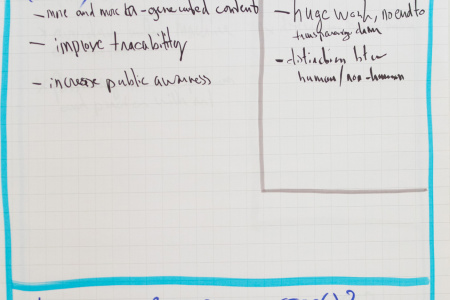 - more and more -generated content
- improve tracability
- increase public awarness
- huge wash, no end to
transparency
- distinction btw
human/non-human